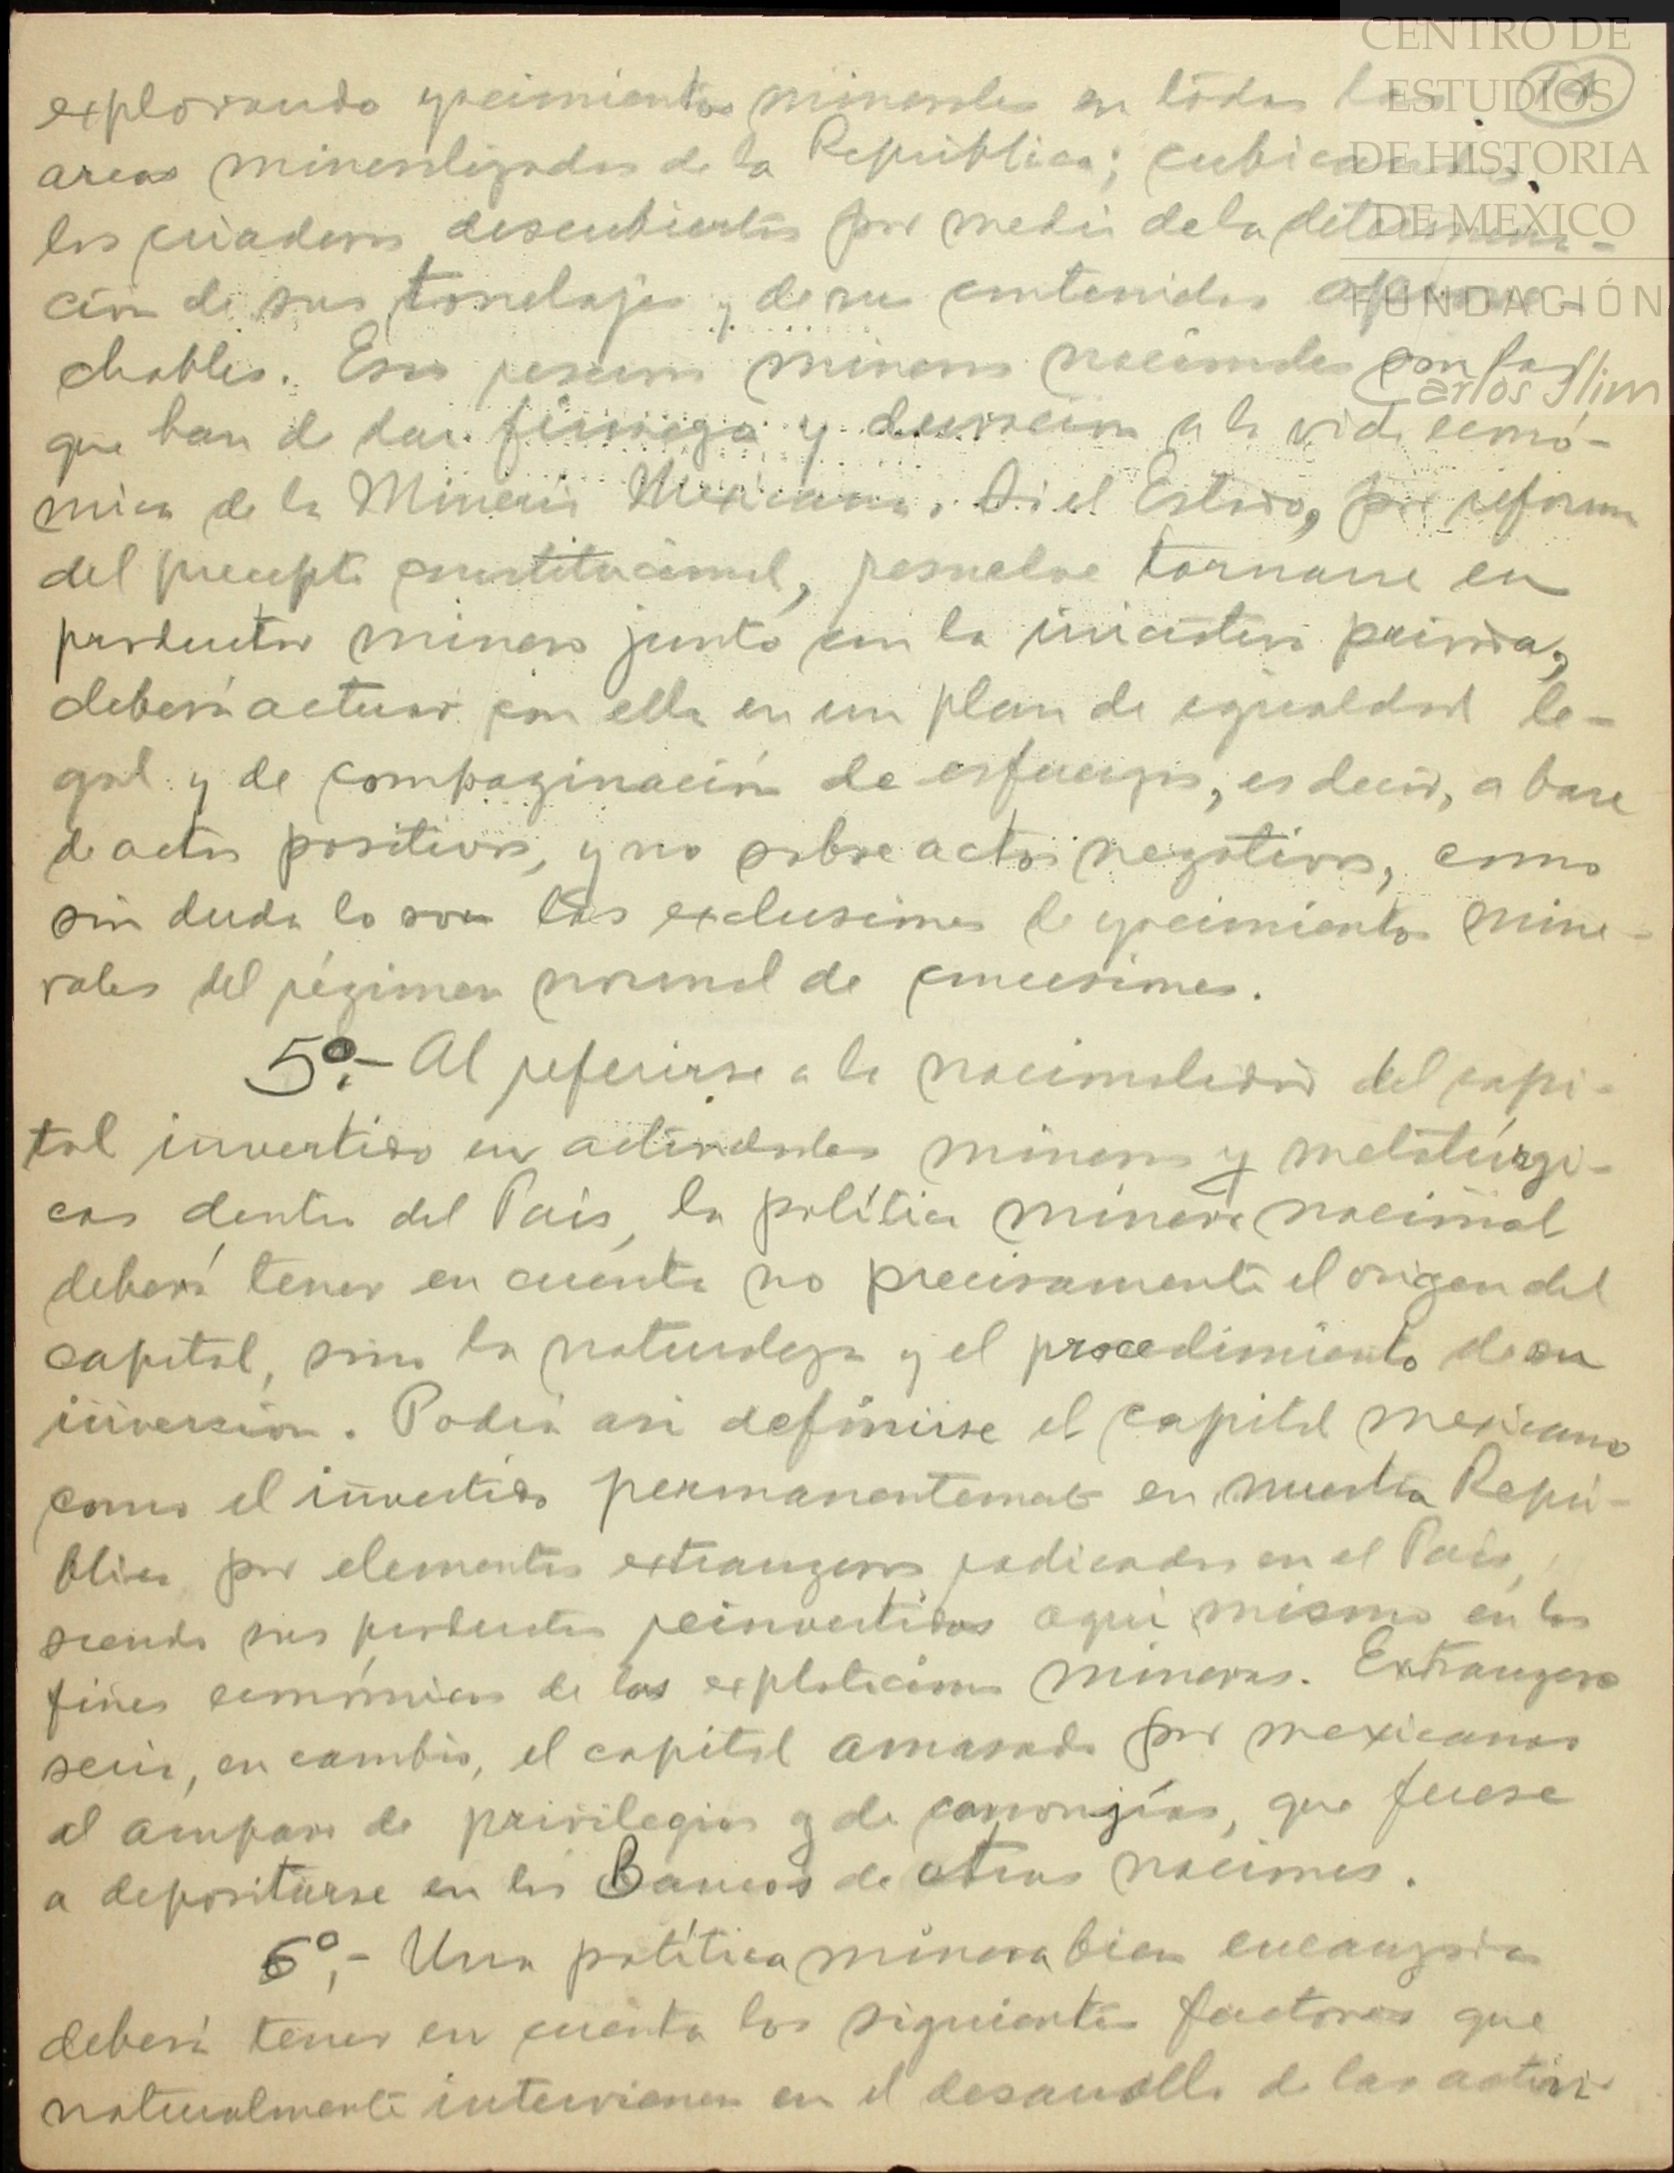 explorando yacimientos minerales en todas las
areas mineralizadas de la República; cubicando
los criaderos descubiertos por medio de la determina-
ción de sus tonelajes y de sus contenidos aprove-
chables. Esas reservas mineras nacionales son las
que han de dar firmeza y duración a la vida econó-
mica de la Minería Mexicana. Si el Estado, por reforma
del precepto constitucional, resuelve tornarse en
productor minero junto con la iniciativa privada,
deberá actuar con ella en un plan de igualdad le-
gal y de compaginación de esfuerzos, es decir, a base
de actos positivos, y no sobre actos negativos, como
sin duda lo son las exclusiones de yacimientos mine-
rales del régimen normal de concesiones.
5º.- Al referirse a la nacionalidad del capi-
tal invertido en actividades mineras y metalúrgi-
cas dentro del País, la política minera nacional
deberá tener en cuenta no precisamente el origen del
capital, sino la naturaleza y el procedimiento de su
inversión. Podría asi definirse el capital mexicano
como el invertido permanentemente en nuestra Repú-
blica por elementos extrangeros radicados en el País,
siendo sus productos reinvertidos aquí mismo en los
fines económicos de las explotaciones mineras. Extrangero
sería, en cambio, el capital amasado por mexicanos
al amparo de privilegios y de canongías, que fuese
a depositarse en los Bancos de otras naciones.
6º.- Una política minera bien encauzada
deberá tener en cuenta los siguientes factores que
naturalmente intervienen en el desarrollo de las activi-
CENTRO DE
ESTUDIOS
DE HISTORIA
DE MEXICO
FUNDACIÓN
Carlos Slim